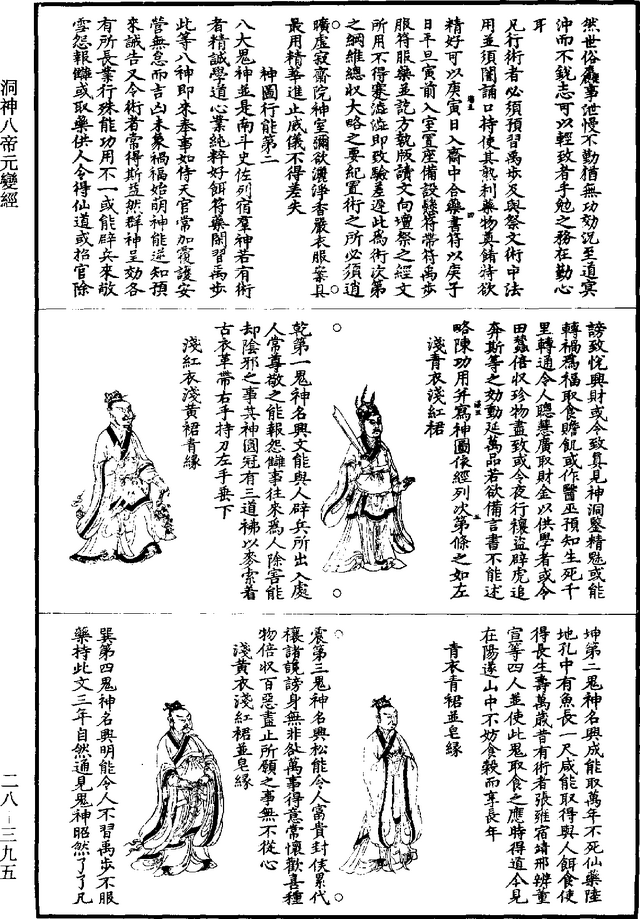 然世俗麤事泄慢不勤猶無功効況至道冥
沖而不銳志可以輕致者乎勉之務在勤心
耳
凡行術者必須預習禹步及與祭文術中法
用並須闇誦口持使其熟利藥物真錯待欲
精好可以庚寅日入齋中合藥書符以庚子
日平旦寅前入室置座備設懸符帶符禹步
服符服藥並訖方執版讀文向壇祭之經文
所用不得蹇澁澁即致驗差遲此為術次第
之綱維總収大略之要紀置術之所必須逍
曠虛寂齋院神室彌欲灑淨香嚴衣服案具
最用精華進止威儀不得差失
神圖行能第二
八大鬼神並是南斗史佐列宿羣神若有術
者精誠學道心業純粹好餌符藥閑習禹步
此等八神即來奉事如侍天官常加覆護安
營無怠而言凶未象禍福始萌神能逆知預
來誠告又令術者常得斯益然群神呈効各
有所長業行殊能功用不一或能辟兵來敬
雪怨報讎或取藥供人令得仙道或招官除
謗致悅興財或令致真見神洞鑒精魅或能
轉禍爲福取食贍飢或作醫巫預知生死千
里轉通令人聰慧廣取財金以供學者或令
田蠶倍収珍物盡致或令夜行禳盜辟虎追
奔斯等之効動延萬品若欲備言書不能述
略陳功用并寫神圖像經列次第條之如左
淺青衣淺紅裙
乾第一鬼神名興文能與人辟兵所出入處
人常尊敬之能報怨讎事往來爲人除害能
却陰邪之事其神圓冠有三道梯以麥索着
古衣革帶右手持刀左手垂下
淺紅衣淺黃裙青緣
坤第二鬼神名興成能取萬年不死仙藥陸
地孔中有魚長一尺咸能取得與人餌食使
得長生壽萬歲昔有術者張雍宿靖邢辨董
宣等四人並使此鬼取食之應時得道今見
在陽遂山中不妨食穀而享長年
青衣青裙並皂緣
震第三鬼神名興松能令人富貴封侯累代
禳諸謗謗身無非欲萬事得意常懷歡喜種
物倍収百惡盡止所願之事無不從心
淺黃衣淺紅裙並皂緣
巽第四鬼神名興明能令人不習禹步不服
藥持此文三年自然通見鬼神昭然了了凡
洞神八帝元變經
二八－三九五